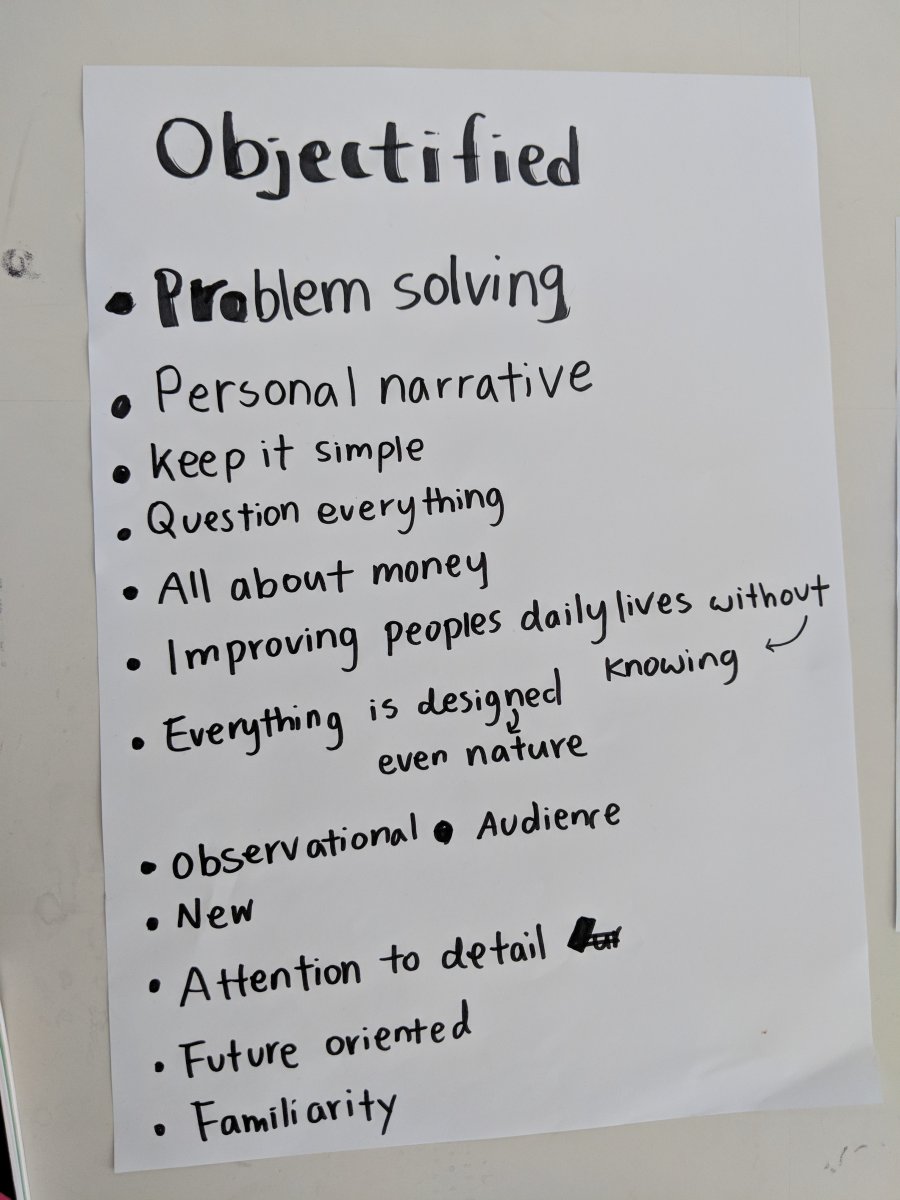 Objectified
• Problem solving
• Personal narrative
• Keep it simple
• Question everything
• All about money
• Improving peoples daily lives without
knowing
• Everything is designed
even nature
• Observational • Audience
• New
• Attention to detail
• Future oriented
• Familiarity